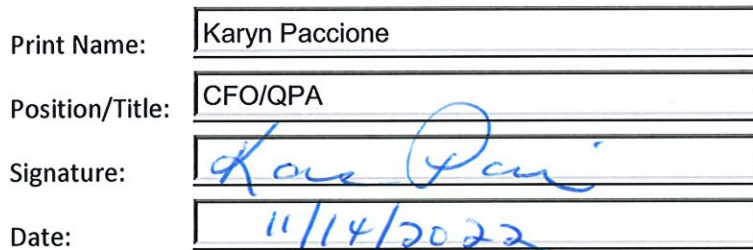 Print Name: Karyn Paccione
Position/Title: CFO/QPA
Signature:
Date: 11/14/2022